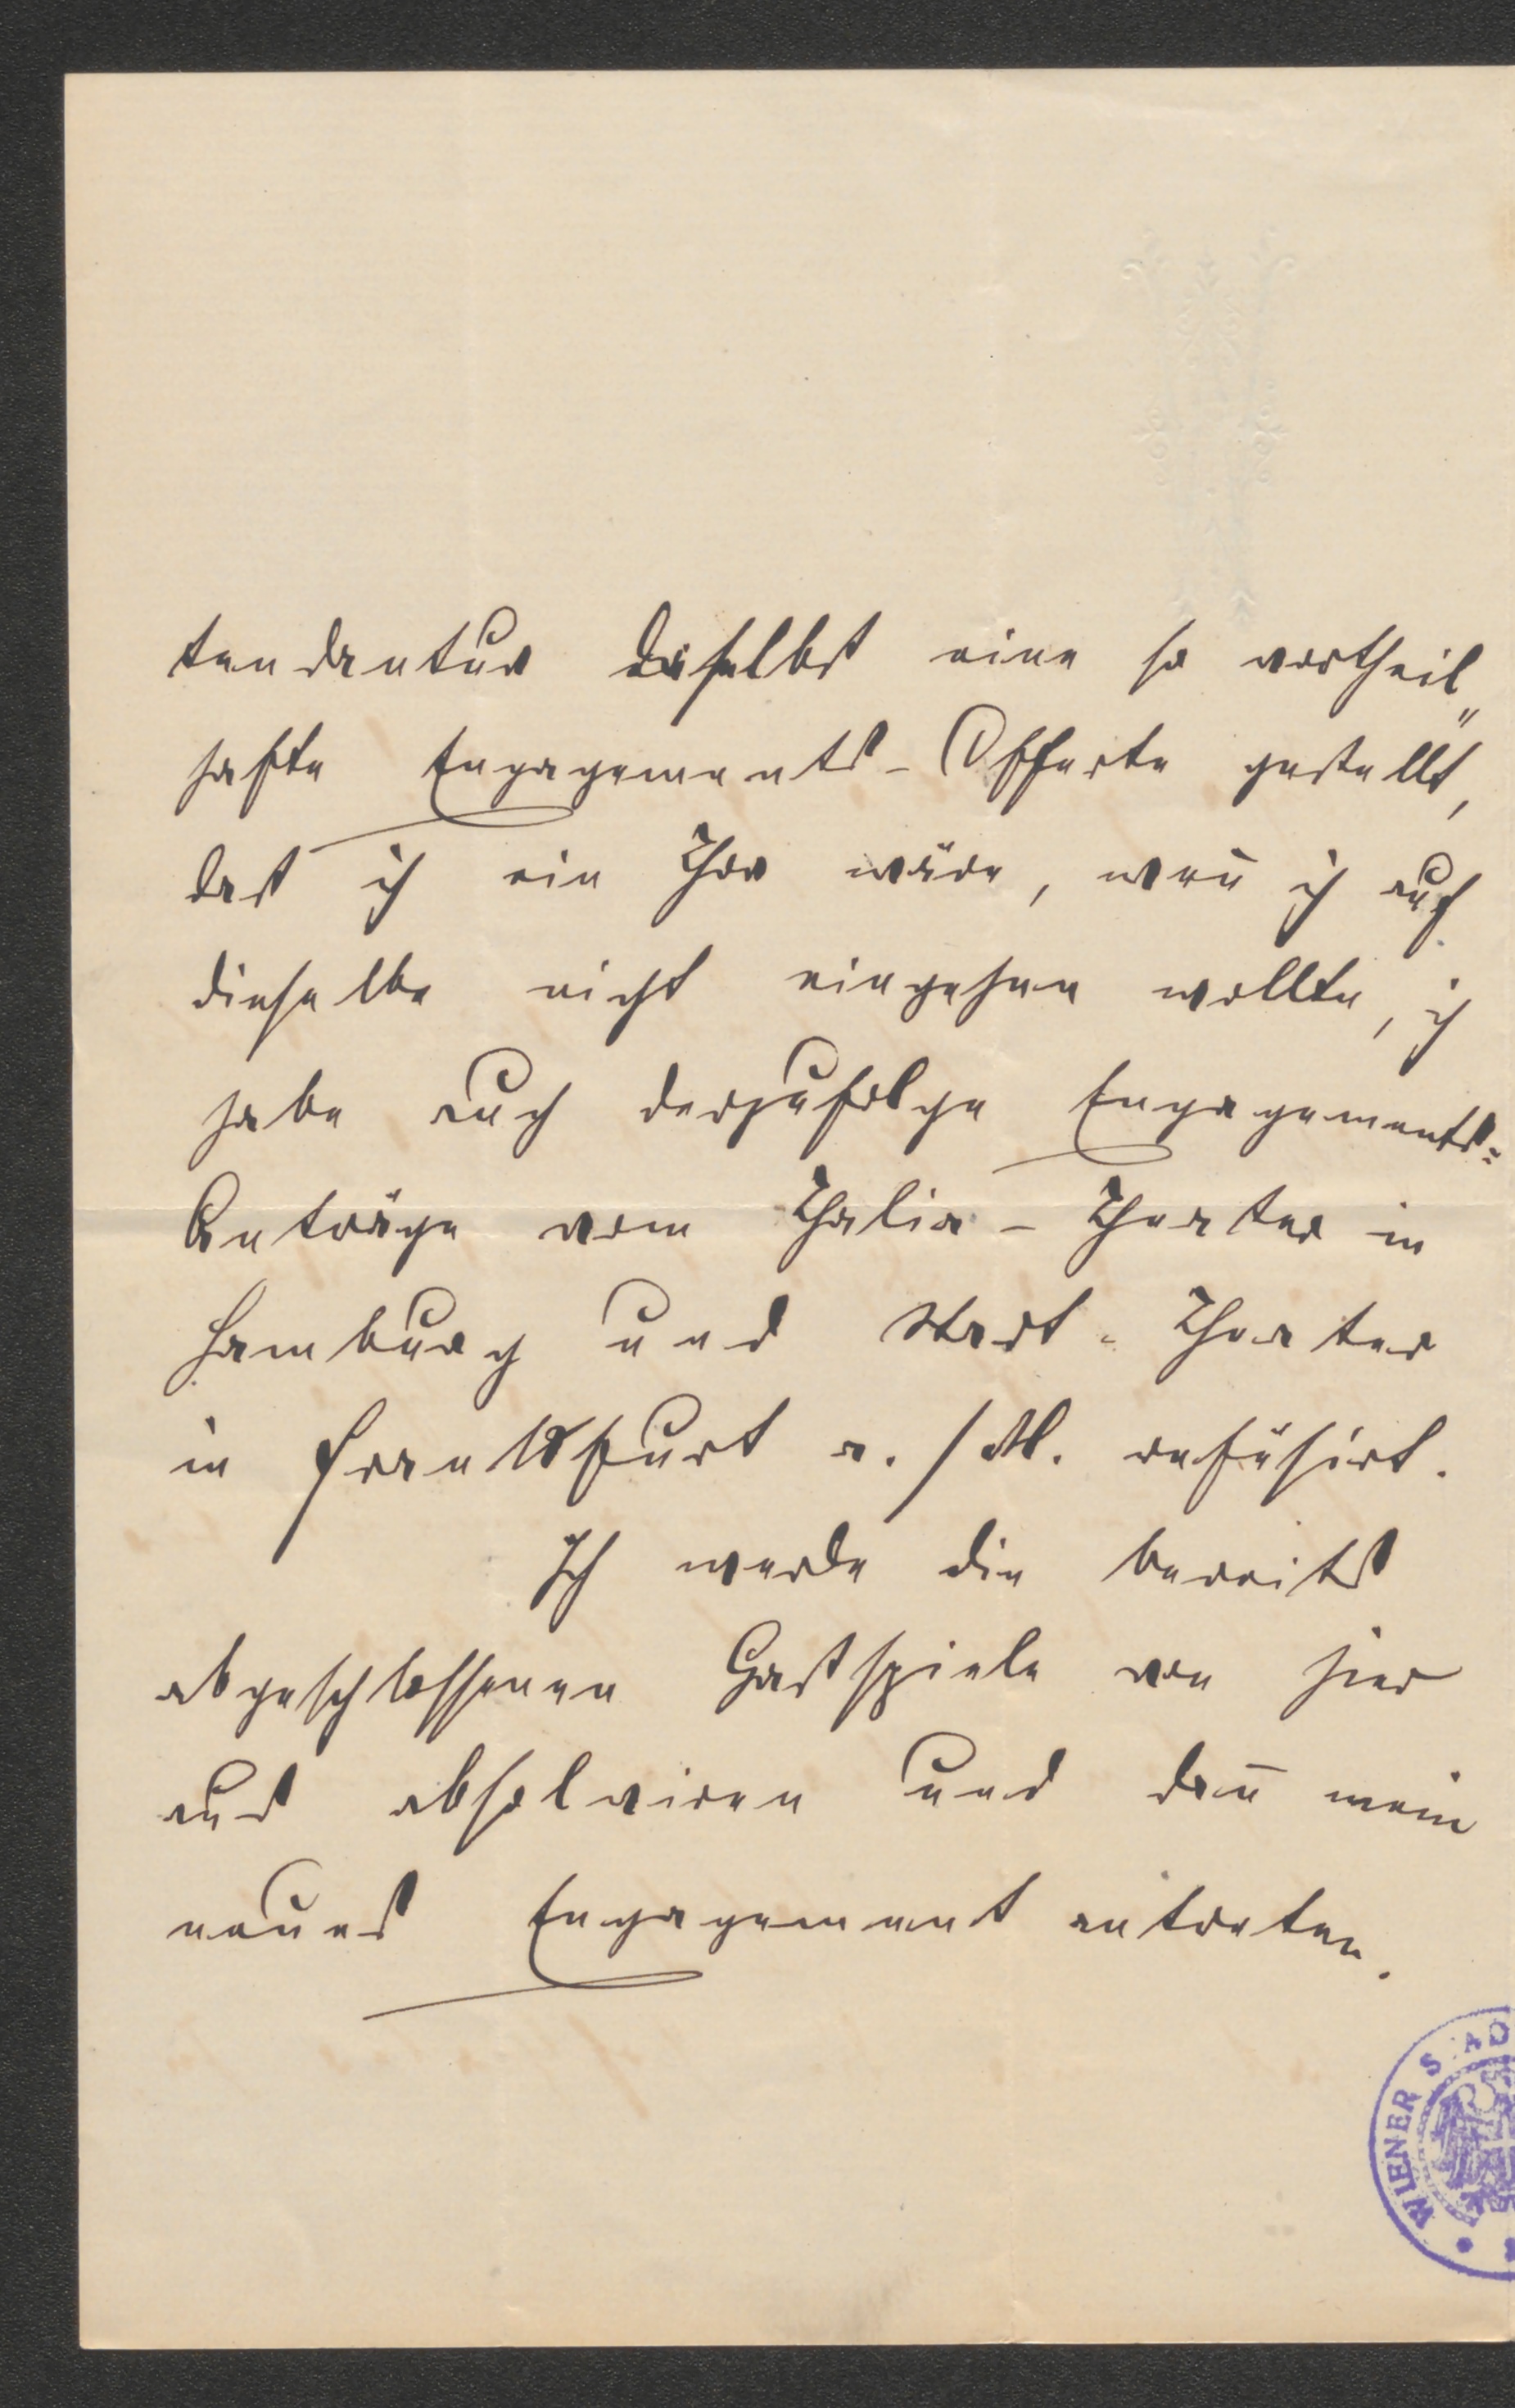 tendantur daselbst eine so vortheil„
hafte Engagements-Offerte gestellt,
daß ich ein Thor wäre, weñ ich auf
dieselbe nicht eingehen wollte, ich
habe auch derzufolge Engagements=
Anträge vom Thalia-Theater in
Hamburg und Stadt-Theater
in Frankfurt a./M. refüsirt.
Ich werde die bereits
abgeschlossenen Gastspiele von hier
aus absolviren und dañ mein
neues Engagement antreten.
WIENER STAD